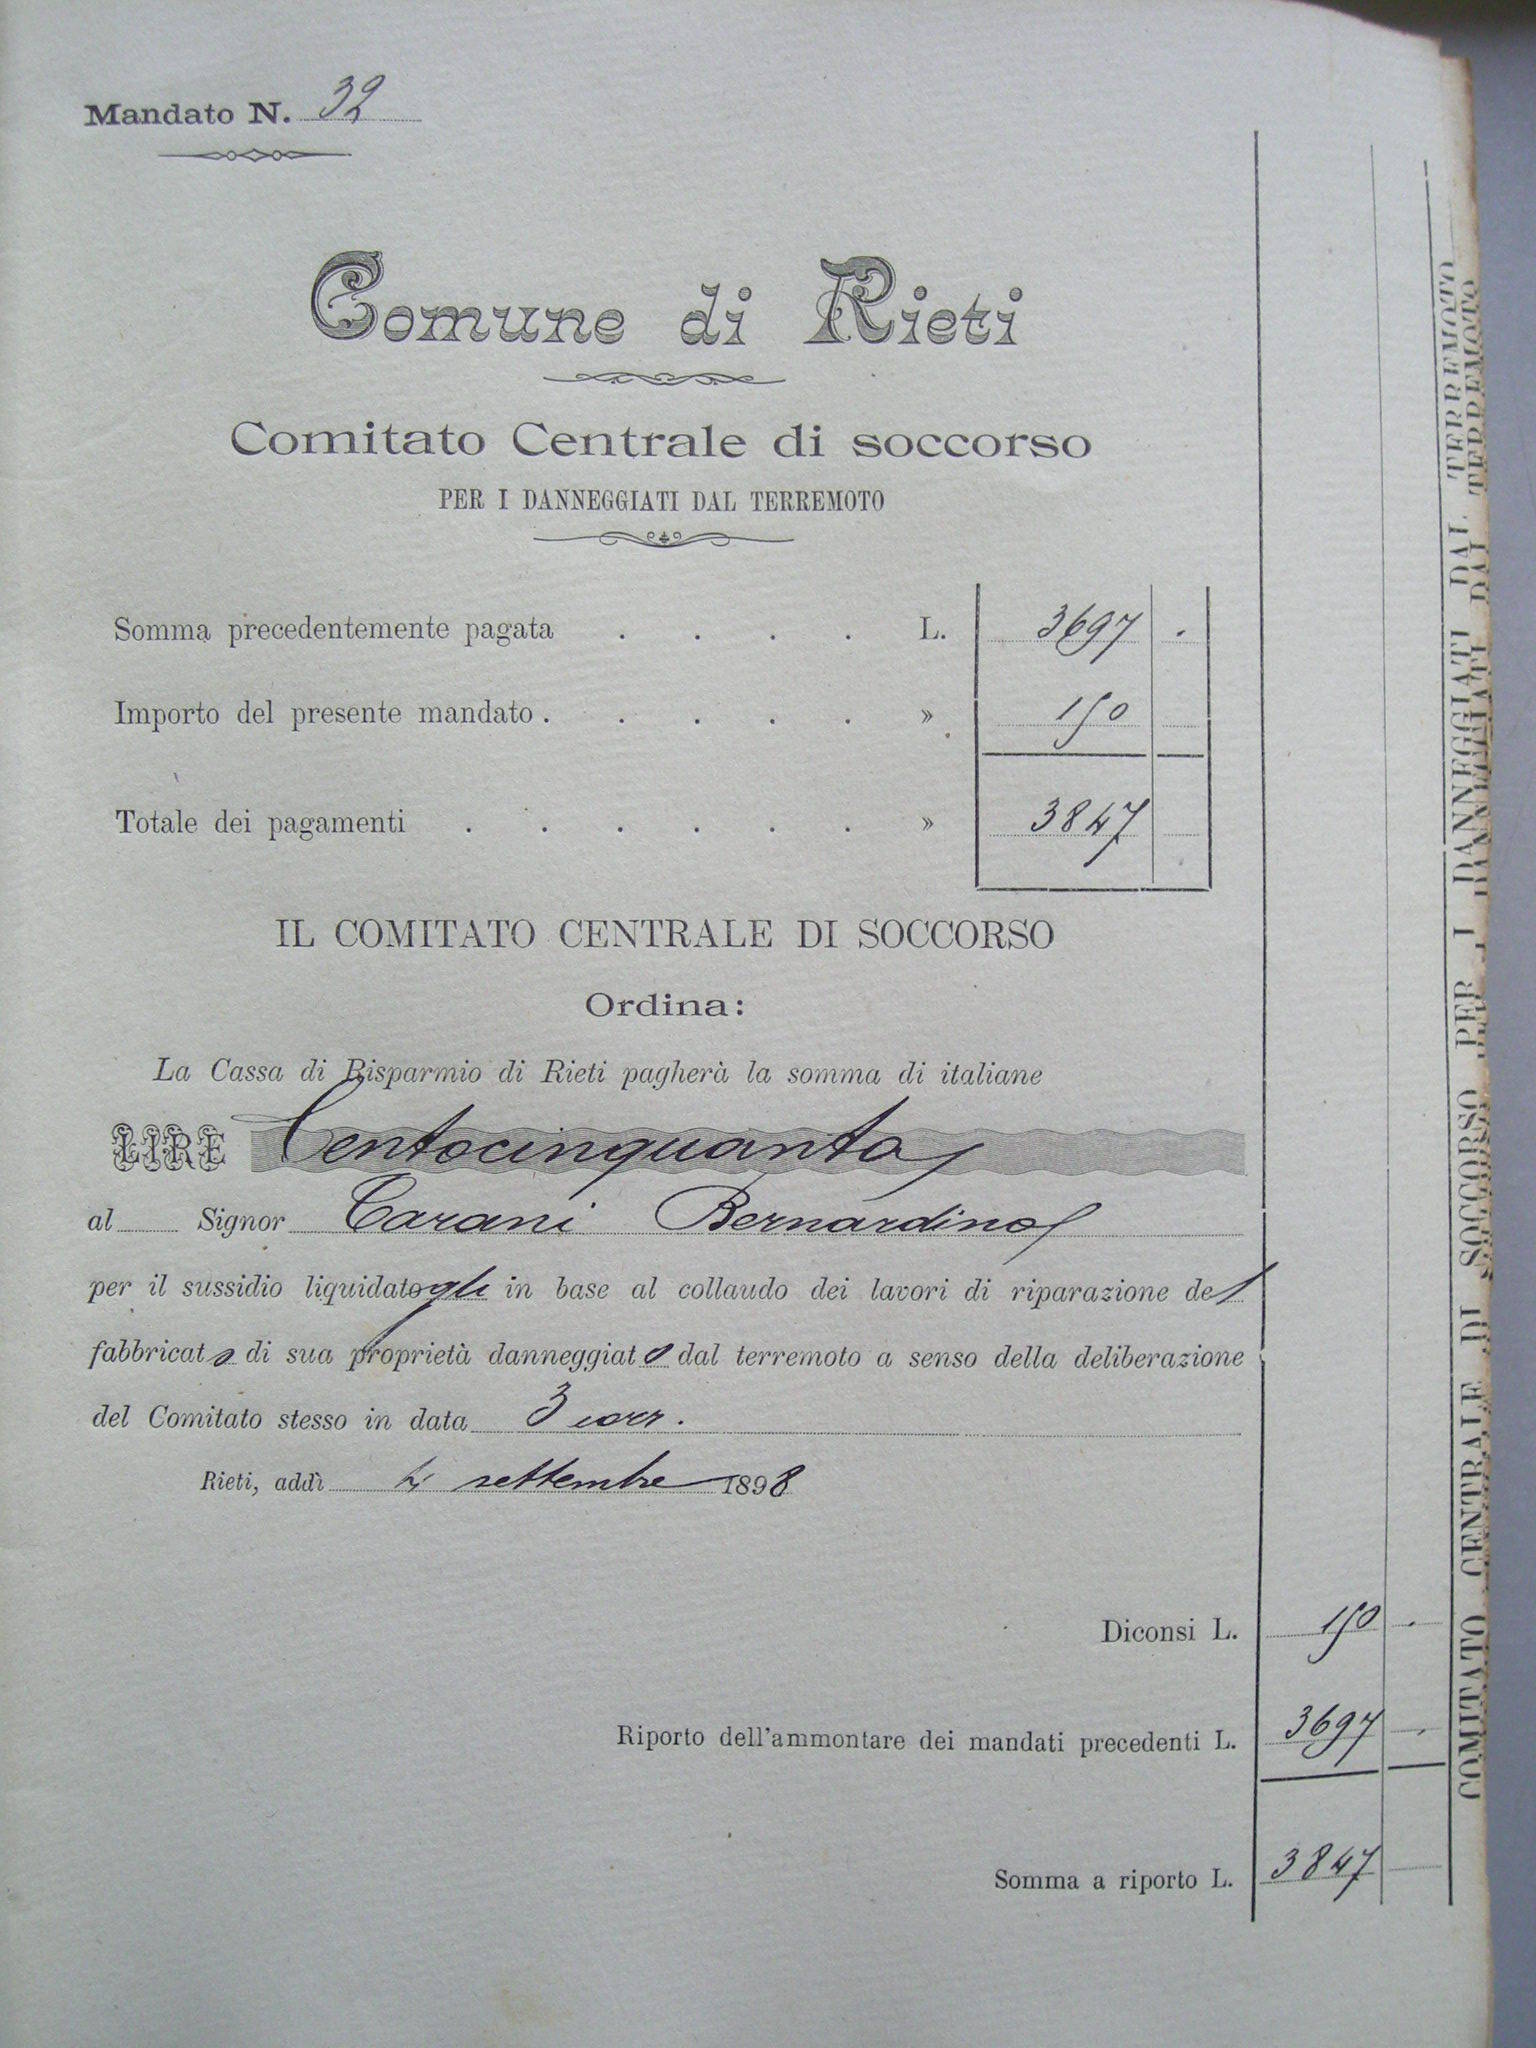 Mandato N. 32
Comune di Rieti
Comitato Centrale di soccorso
PER I DANNEGGIATI DAL TERREMOTO
Somma precedentemente pagata . . . . L. 3697 .
Importo del presente mandato . . . . . » 150
Totale dei pagamenti . . . . . . » 3847
IL COMITATO CENTRALE DI SOCCORSO
Ordina:
La Cassa di Risparmio di Rieti pagherà la somma di italiane
LIRE Centocinquanta
al Signor Carani Bernardino
per il sussidio liquidatogli in base al collaudo dei lavori di riparazione del
fabbricato di sua proprietà danneggiato dal terremoto a senso della deliberazione
del Comitato stesso in data 3 corr.
Rieti, addì 4 settembre 1898
Diconsi L. 150 .
Riporto dell'ammontare dei mandati precedenti L. 3697 .
Somma a riporto L. 3847
COMITATO CENTRALE DI SOCCORSO PER I DANNEGGIATI DAL TERREMOTO